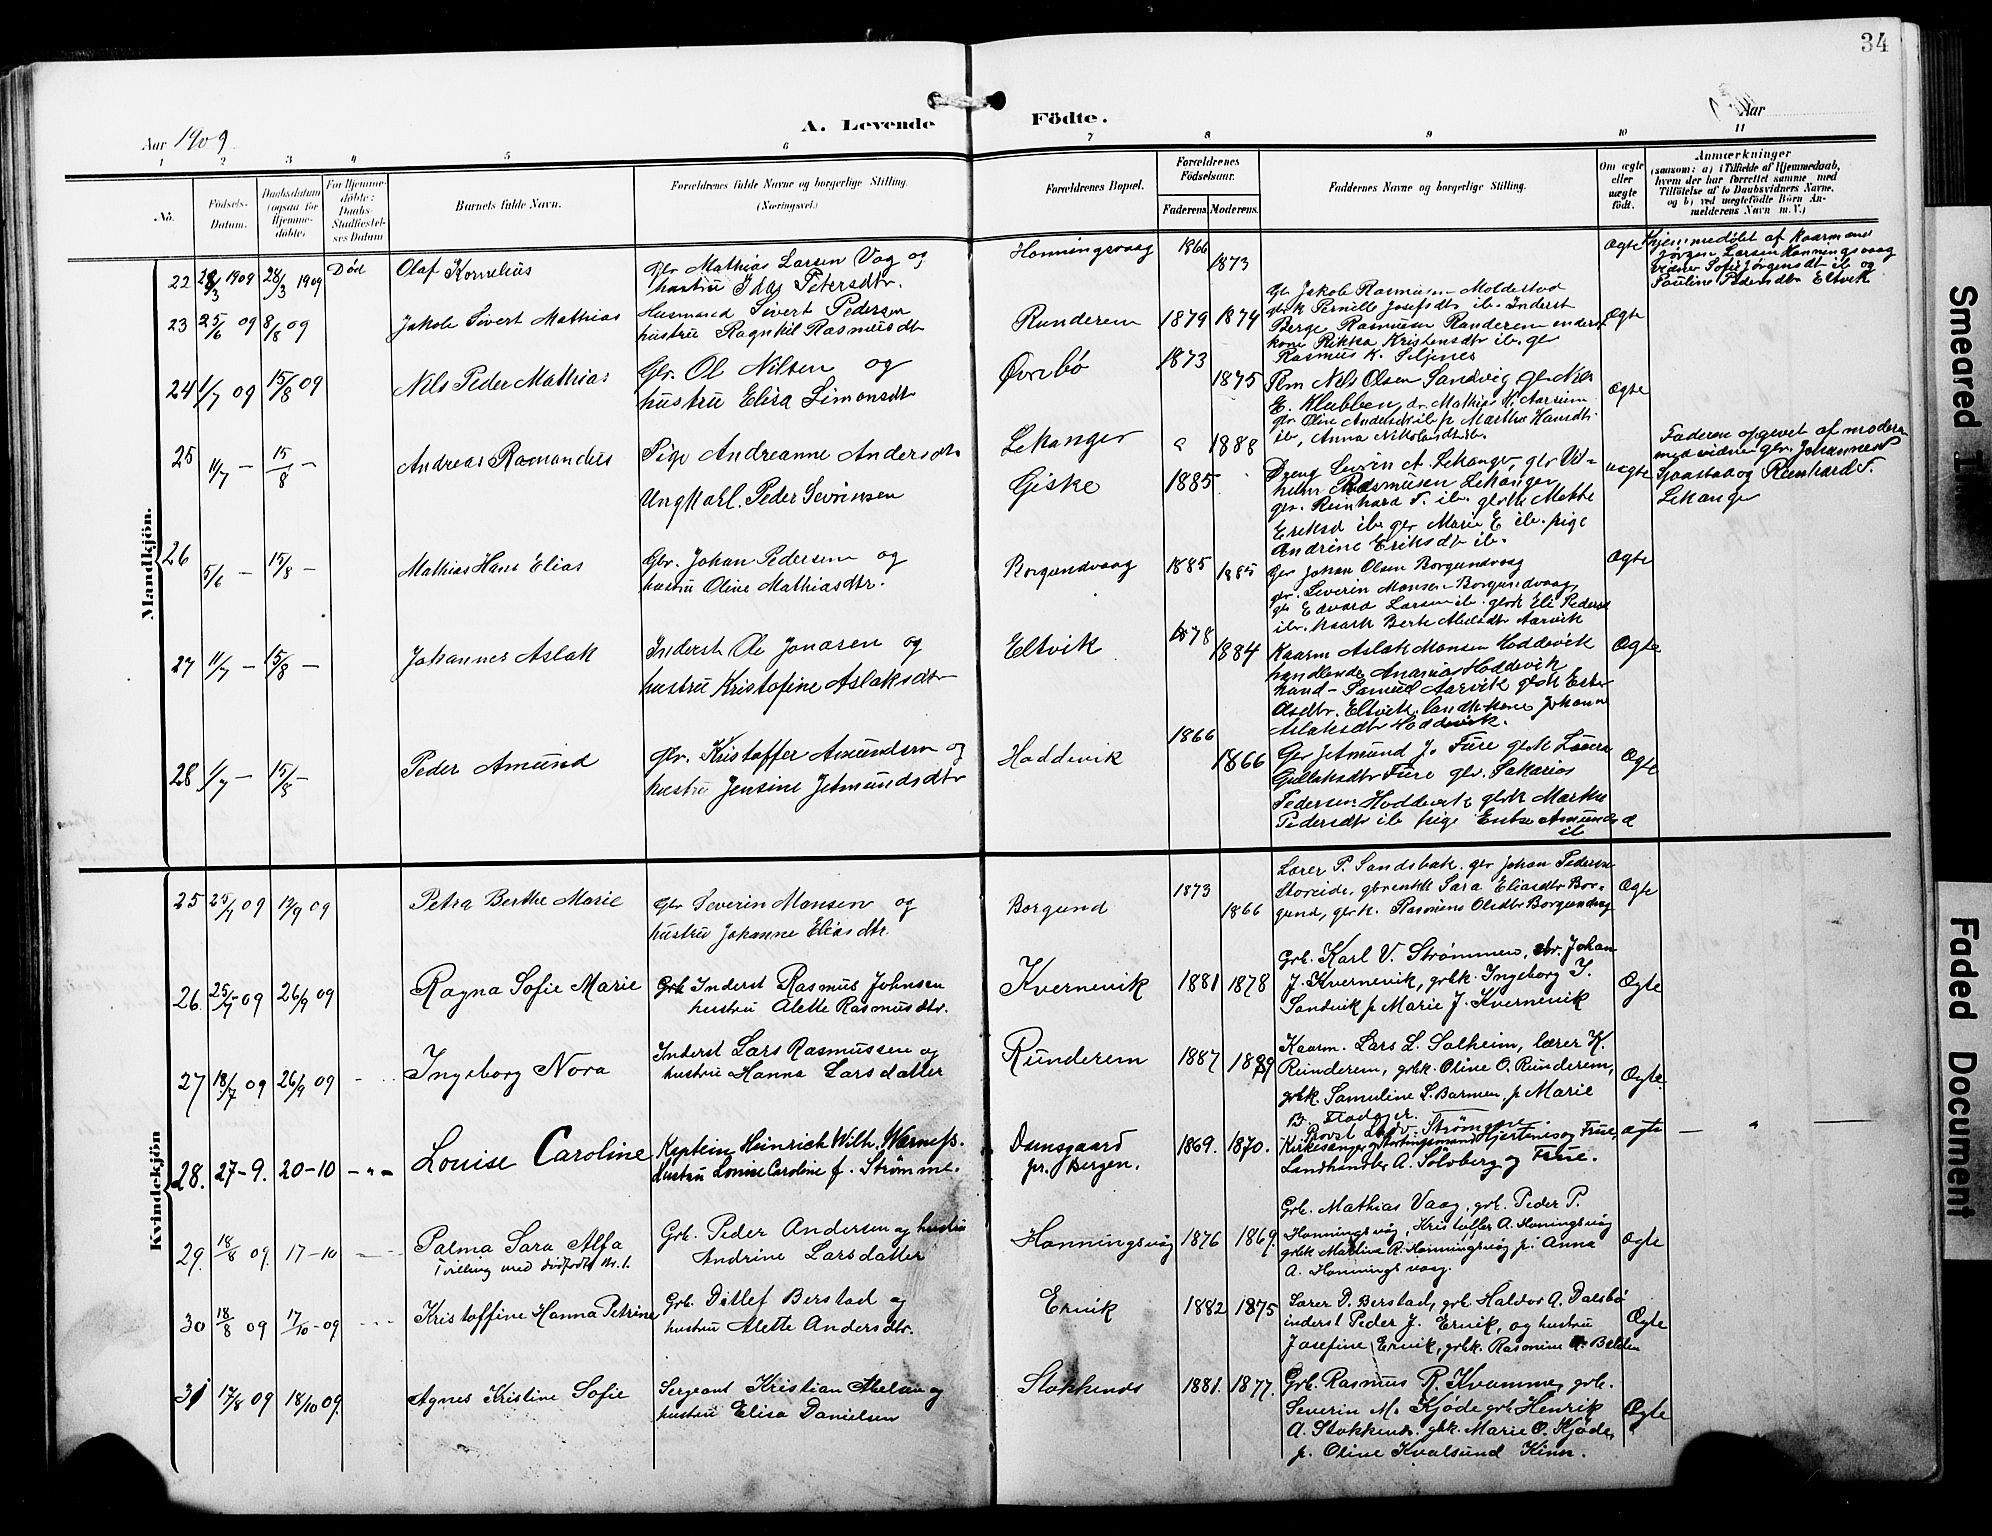 34
A. Levende Födte.
Aar 1909
Aar
1 2 3 4 5 6 7 8 9 10 11
No.
Födsels-Datum.
Daabsdatum (ogsaa for Hjemmedöbte)
For Hjemmedöbte: Daabs-Stadfæstelses Datum
Barnets fulde Navn.
Forældrenes fulde Navne og borgerlige Stilling. (Næringsvei.)
Forældrenes Bopæl.
Forældrenes Födselsaar.
Faderens. Moderens.
Faddernes Navne og borgerlige Stilling.
Om ægte eller uægte født.
Anmærkninger
(saasom: a) i Tilfælde af Hjemmedaab, hvem der har forrettet samme med Tilföielse af to Daabsvidners Navne, og b) ved uægtefödte Börn Anmelderens Navn m. V.)
Mandkjön.
22 28/3 1909 28/3 1909 Död Olaf Kornelius
Gbr Mathias Larsen Vag og
hustru Ida Petersdtr.
Honningsvaag 1866 1873 Ægte
Hjemmedöbt af Kaarmand
Jörgen Larsen Honningsvaag
vidner Sofie Jørgensdtr ib og
Pauline Pedersdtr Eltvik
23 25/6 09 8/8 09 Jakob Sivert Mathias
Husmand Sivert Pedersen
hustru Ragnhil Rasmusdtr
Runderem 1879 1874
Gbr Jakob Rasmusen Moldestad
gbrk Pernille Josefsdtr ib. Inderst
Berge Rasmusen Runderem inderst
kone Rikka Kristensdtr ib. gbr
Rasmus K. Seljenes
Ægte
24 1/7 09 15/8 09 Nils Peder Mathias
Gbr. Ol Nilsen og
hustru Elisa Simonsdtr
Øvrebö 1873 1875
Pm Nils Olsen Sandvig, gbr Nils
E. Klubben, dr. Mathias N. Aarseim
gbr Oline Andersdtr ib p Marthe Hansdtr
ib, Anna Nikolaisdtr ib.
Ægte
25 11/7 – 15/8 – Andreas Romandus
Pige Andreanne Andersdtr
Ungkarl. Peder Severinsen
Lekanger 1888
Giske 1885
Dreng Severin A. Lekanger, gbr Vilhelm Rasmusen Lekanger
gbr. Reinhard T. ib. gbrk Mette
Eriksd ib gbr Marie E ib. pige
Andrine Eriksdtr ib.
uægte
Faderen opgevet af moderen
med vidner gbr. Johannes
Sjaastad og Reinhard T.
Lekanger
26 5/6 – 15/8 – Mathias Hans Elias
Gbr. Johan Pedersen og
hustru Oline Mathiasdtr.
Borgundvaag 1885 1885
Gbr Johan Olsen Borgundvaag
gbr. Severin Monsen Borgundvaag,
gbr Edvard Larsen ib. gbrk Eli Pedersd
ib. kaark Berte Abelsdtr Aarvik
Ægte
27 11/7 – 15/8 – Johannes Aslak
Inderst Ole Jonasen og
hustru Kristofine Aslaksdtr
Eltvik 1878 1884
Kaarm Aslak Monsen Hoddevik
handlende Ananias Hoddevik
hand– Samud Aarvik gbrk Ester
Olsdtr. Eltvik, landh.kone Johanne
Aslaksdtr Hoddevik.
Ægte
28 11/7 – 15/8 – Peder Amund
Gbr. Kristoffer Amundsen og
hustru Jensine Jetmundsdtr
Hoddevik 1866 1866
Gbr Jetmund J. Fure gbrk Lovise
Gullaksdtr Fure gbr. Sakarias
Pedersen Hoddevik gbrk Marthe
Pedersdtr ib pige Ester Amundsd
ib
Ægte
Kvindekjön
25 25/7 09 12/9 09 Petra Berthe Marie
Gbr Severin Monsen og
hustru Johanne Eliasdtr.
Borgund 1873 1866
Lærer P. Sandsbak. gbr Johan Pedersen
Storeide, gbrenke Sara Eliasdtr Borgund, gbrk. Rasmine Olsdtr Borgundvag
Ægte
26. 25/7 09 26/9 09 Ragna Sofie Marie
Inderst Rasmus Johnsen
hustru Alette Rasmusdtr.
Kvernevik 1881 1878
Grb. Karl V. Strømmen, Johan
J. Kvernevik, grbk. Ingeborg J.
Sandvik p Marie J. Kvernevik
Ægte
27 18/7 09 26/9 09 Ingeborg Nora
Inderst Lars Rasmussen og
hustru Hanna Larsdatter
Runderem 1887 1889
Kaarm. Lars L. Solheim, lærer K.
Runderem, grbk. Oline O. Runderem,
grbk. Samuline S. Barmen p Marie
B.
Ægte.
28. 27–9. 20–10 – " – Louise Caroline
Kaptein Heinrich Wilh. Warneß.
Hustru Louise Caroline f. Strømme.
Damsgaard
pr. Bergen. 1869. 1870.
Provst Strømme
Kirkesanger og Stortingsmand Hjertenes og Frue,
Landhandler A. Sølvberg og Frue.
ægte
29. 18/8 09. 17–10 Palma Sara Alfa
Tvilling med dödfödt No. 1.
Grb. Peder Andersen og hustru
Andrine Larsdatter
Honningsvåg 1876 1869.
Grb. Mathias Vaag, grb. Peder P.
Honningsvåg, Kristoffer A. Honingsvåg
grbk Martine R. Honningsvåg p. Anna
A. Honningsvaag.
Ægte
30 18/8 09 17/10–09 Kristoffine Hanna Petrine
Grb. Ditlef Berstad og
hustru Alette Andersdtr.
Ervik 1882 1875
Lærer D. Berstad, grb. Haldor A. Dalsbø
inderst Peder J. Ervik, og hustru
Josefine Ervik, grbk. Rasmine
Ægte
31 17/8 09 18/10 09. Agnes Kristine Sofie
Sergeant Kristian Abelsen og
hustru Elisa Danielsen
Stokkenes 1881. 1877.
Grb. Rasmus R. Kvamme, grb.
Severin M. Kjøde grb Henrik
A. Stokkenes. gbk. Marie O. Kjøde,
p. Oline Kvalsund Kinn.
Ægte
Smeared
Faded Document